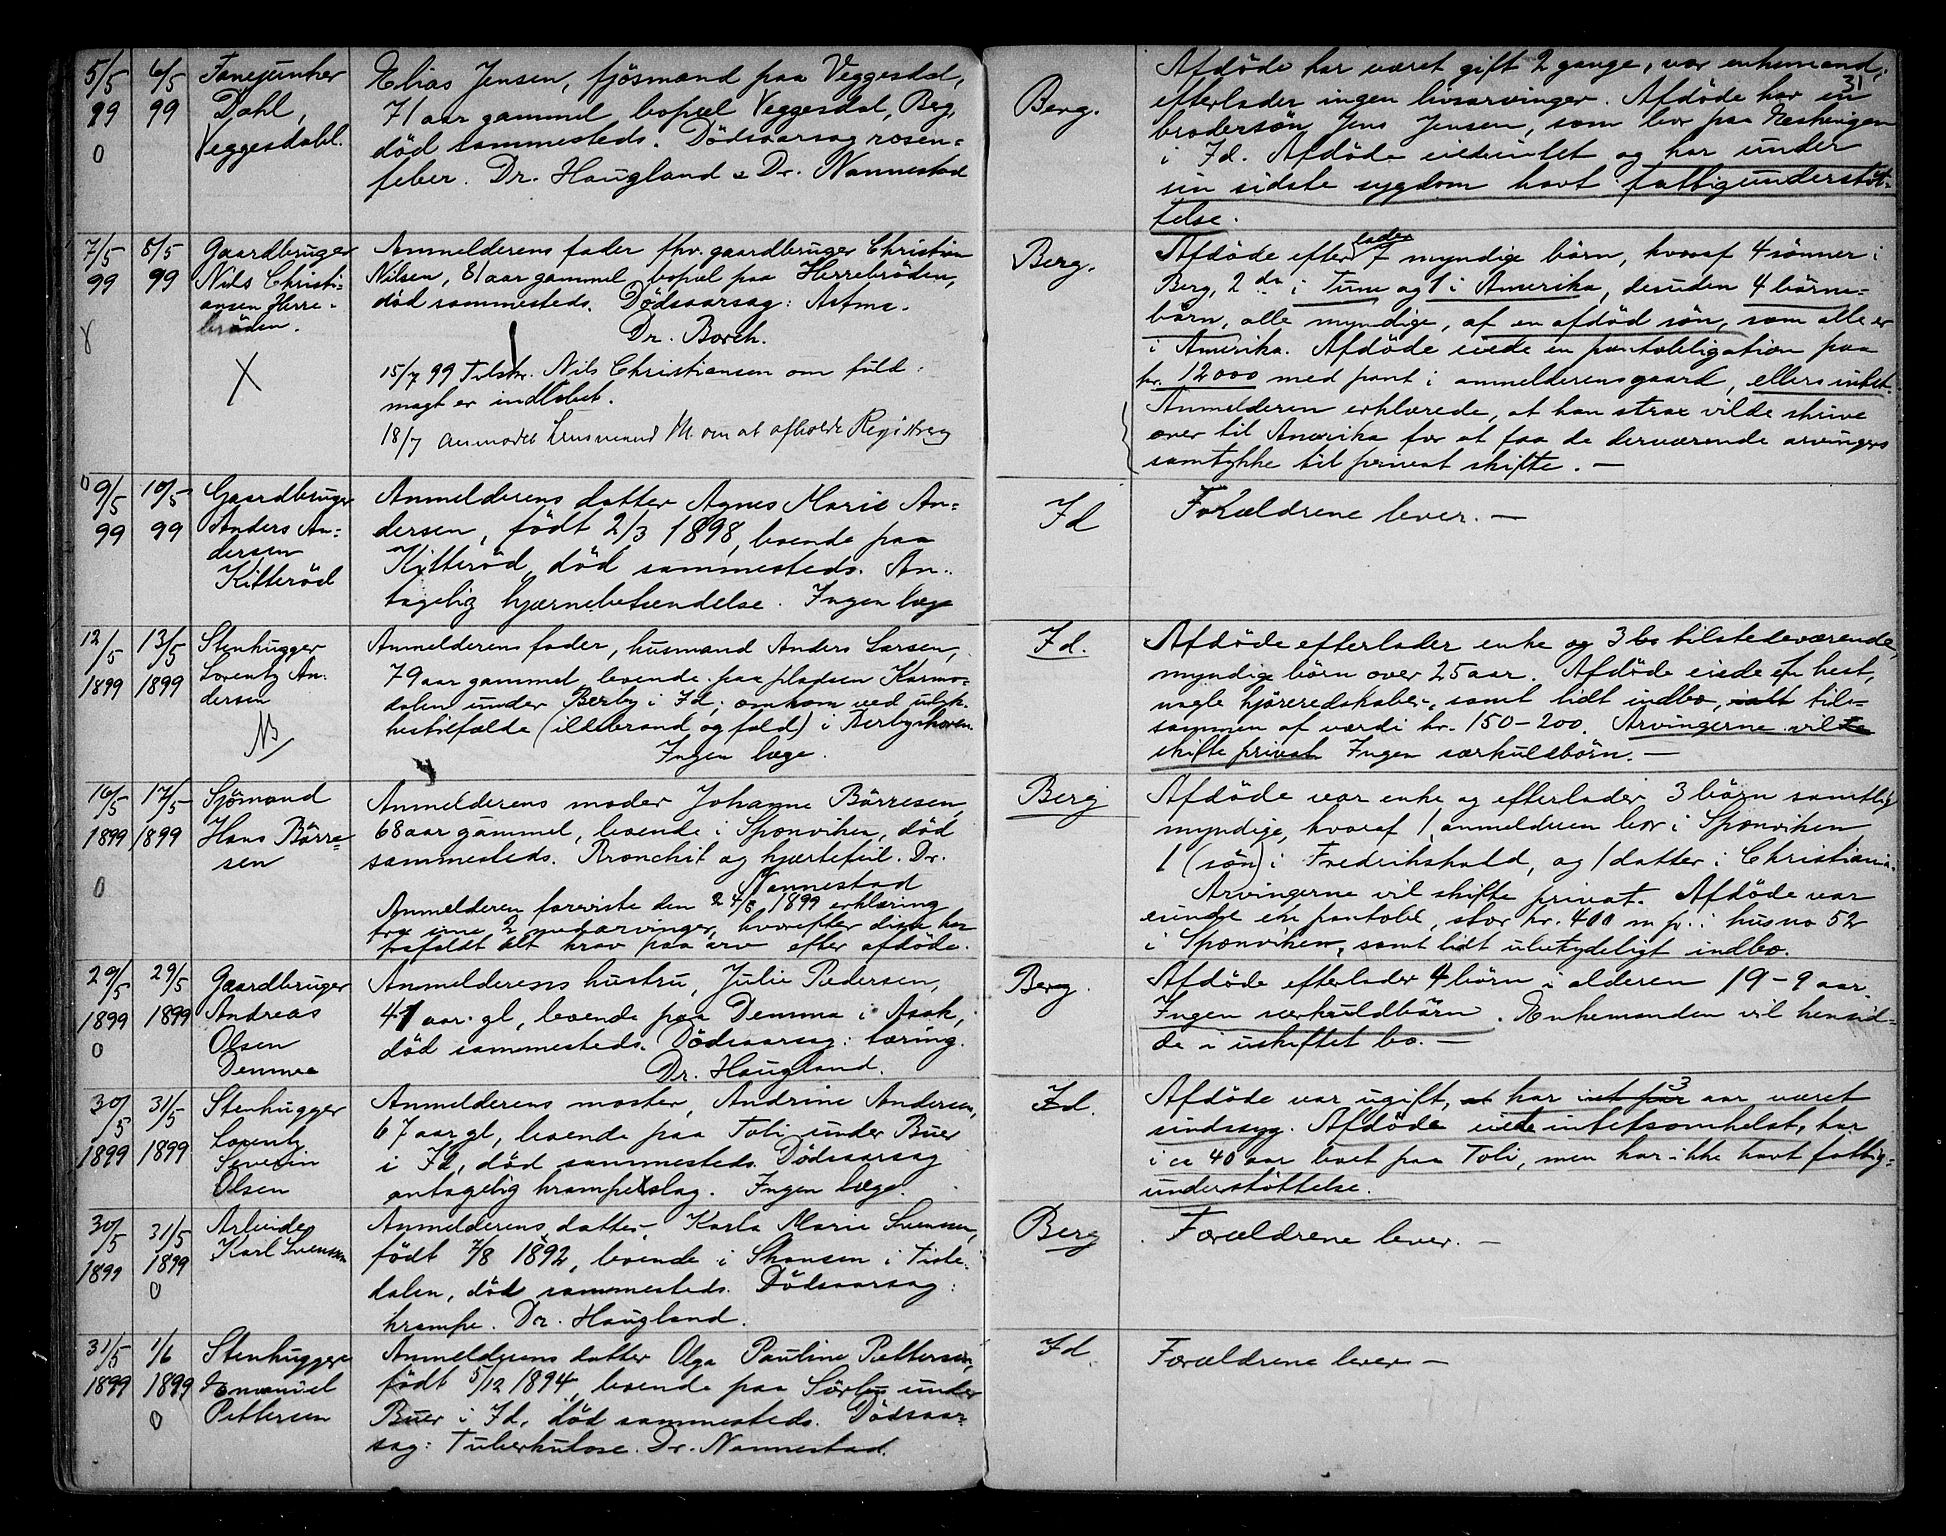 31
5/5
99
0
6/5
99
Fanejunker
Dahl,
Veggesdahl.
Elias Jensen, fjösmand paa Veggesdal,
71 aar gammel, bopæl Veggesdal, Berg,
död sammesteds. Dödsaarsag rosen-
feber. Dr. Haugland & Dr. Nannestad
Berg.
Afdöde har været gift 2 gange, var enkemand,
efterlader ingen livsarvinger. Afdöde har en
brodersön Jens Jensen, som bor paa
i Id. Afdöde eiede intet og har under
sin sidste sygdom havt fattigunderstöt-
telse.
7/5
99
8/5
99
Gaardbruger
Nils Christi-
ansen Herre-
bröden.
X
Anmelderens fader fhv. gaardbruger Christian
Nilsen, 81 aar gammel, bopæl paa Herrebröden,
död sammesteds. Dödsaarsag: Astma.
Dr. Borch.
15/7 99 Tilskr. Nils Christiansen om fuld-
magt er indlöbet.
18/7 anmodet Lensmand M. om at afholde Registrering
Berg.
Afdöde efterlader 7 myndige börn, hvoraf 4 sönner i
Berg, 2 do i Tune og 1 i Amerika, desuden 4 börne-
börn, alle myndige, af en afdöd sön, som alle er
i Amerika. Afdöde eiede en pantobligation paa
kr. 12000 med pant i anmelderens gaard, ellers intet.
Anmelderen erklærede, at han strax vilde skrive
over til Amerika for at faa de derværende arvingers
samtykke til privat skifte. —
0 9/5
99
10/5
99
Gaardbruger
Anders An-
dersen
Kitteröd
Anmelderens datter Agnes Marie An-
dersen, födt 2/3 1898, boende paa
Kitteröd, död sammesteds. An-
tagelig hjærnebetændelse. Ingen læge
Id
Forældrene lever. —
12/5
1899
13/5
1899
Stenhugger
Lorentz An-
dersen
Anmelderens fader, husmand Anders Larsen,
79 aar gammel, boende paa pladsen Karmo-
dalen under Berby i Id; omkom ved ulyk-
kestilfælde (ildebrand og fald) i Berbyskoven.
Ingen læge.
Id.
Afdöde efterlader enke og 3 tilstedeværende,
myndige börn over 25 aar. Afdöde eiede en hest,
nogle kjöreredskaber, samt lidt indbo, til-
sammen af værdi kr. 150-200. Arvingerne vil
skifte privat. Ingen særkulsbörn. —
16/5
1899
0
17/5
1899
Sjömand
Hans Börre-
sen
Anmelderens moder Johanne Börresen,
68 aar gammel, boende i Sponviken, död
sammesteds. Bronchit og hjærtefeil. Dr.
Nannestad
Anmelderen foreviste den 24/8 1899 erklæring
fra sine 2 medarvinger, hvorefter disse har
frafaldt alt krav paa arv efter afdöde.
Berg
Afdöde var enke og efterlader 3 börn samtlig
myndige, hvoraf 1, anmelderen bor i Sponviken
1 (sön) i Fredrikshald, og 1 datter i Christiania.
Arvingerne vil skifte privat. Afdöde var
eiende en pantobl. stor kr. 400 m. p. i hus no 52
i Sponviken, samt lidt ubetydeligt indbo.
29/5
1899
0
29/5
1899
Gaardbruger
Andreas
Olsen
Demma
Anmelderens hustru, Julie Pedersen,
41 aar gl, boende paa Demma i Asak,
död sammesteds. Dödsaarsag: tæring.
Dr. Haugland.
Berg.
Afdöde efterlader 4 börn i alderen 19-9 aar.
Ingen særkuldbörn. Enkemanden vil hensid-
de i uskiftet bo. —
30/5
1899
31/5
1899
Stenhugger
Lorentz
Severin
Olsen
Anmelderens moster, Andrine Andersen,
67 aar gl, boende paa Toli under Buer
i Id, död sammesteds. Dödsaarsag
antagelig krampeslag. Ingen læge.
Id.
Afdöde var ugift, har 3 aar været
sindssyg. Afdöde eiede intetsomhelst, har
i ca 40 aar boet paa Toli, men har ikke havt fattig-
understöttelse.
30/5
1899
31/5
1899
0
Arbeider
Karl Svensen
Anmelderens datter, Karla Marie Svensen,
födt 7/8 1892, boende i Skansen i Tiste-
dalen, död sammesteds. Dödsaarsag:
krampe. Dr. Haugland.
Berg
Forældrene lever. —
31/5
1899
1/6
1899
0
Stenhugger
Emanuel
Pettersen
Anmelderens datter Olga Pauline Pettersen,
födt 5/12 1894, boende paa Sörbö under
Buer i Id, död sammesteds. Dödsaar-
sag: Tuberkulose. Dr. Nannestad.
Id
Forældrene lever —